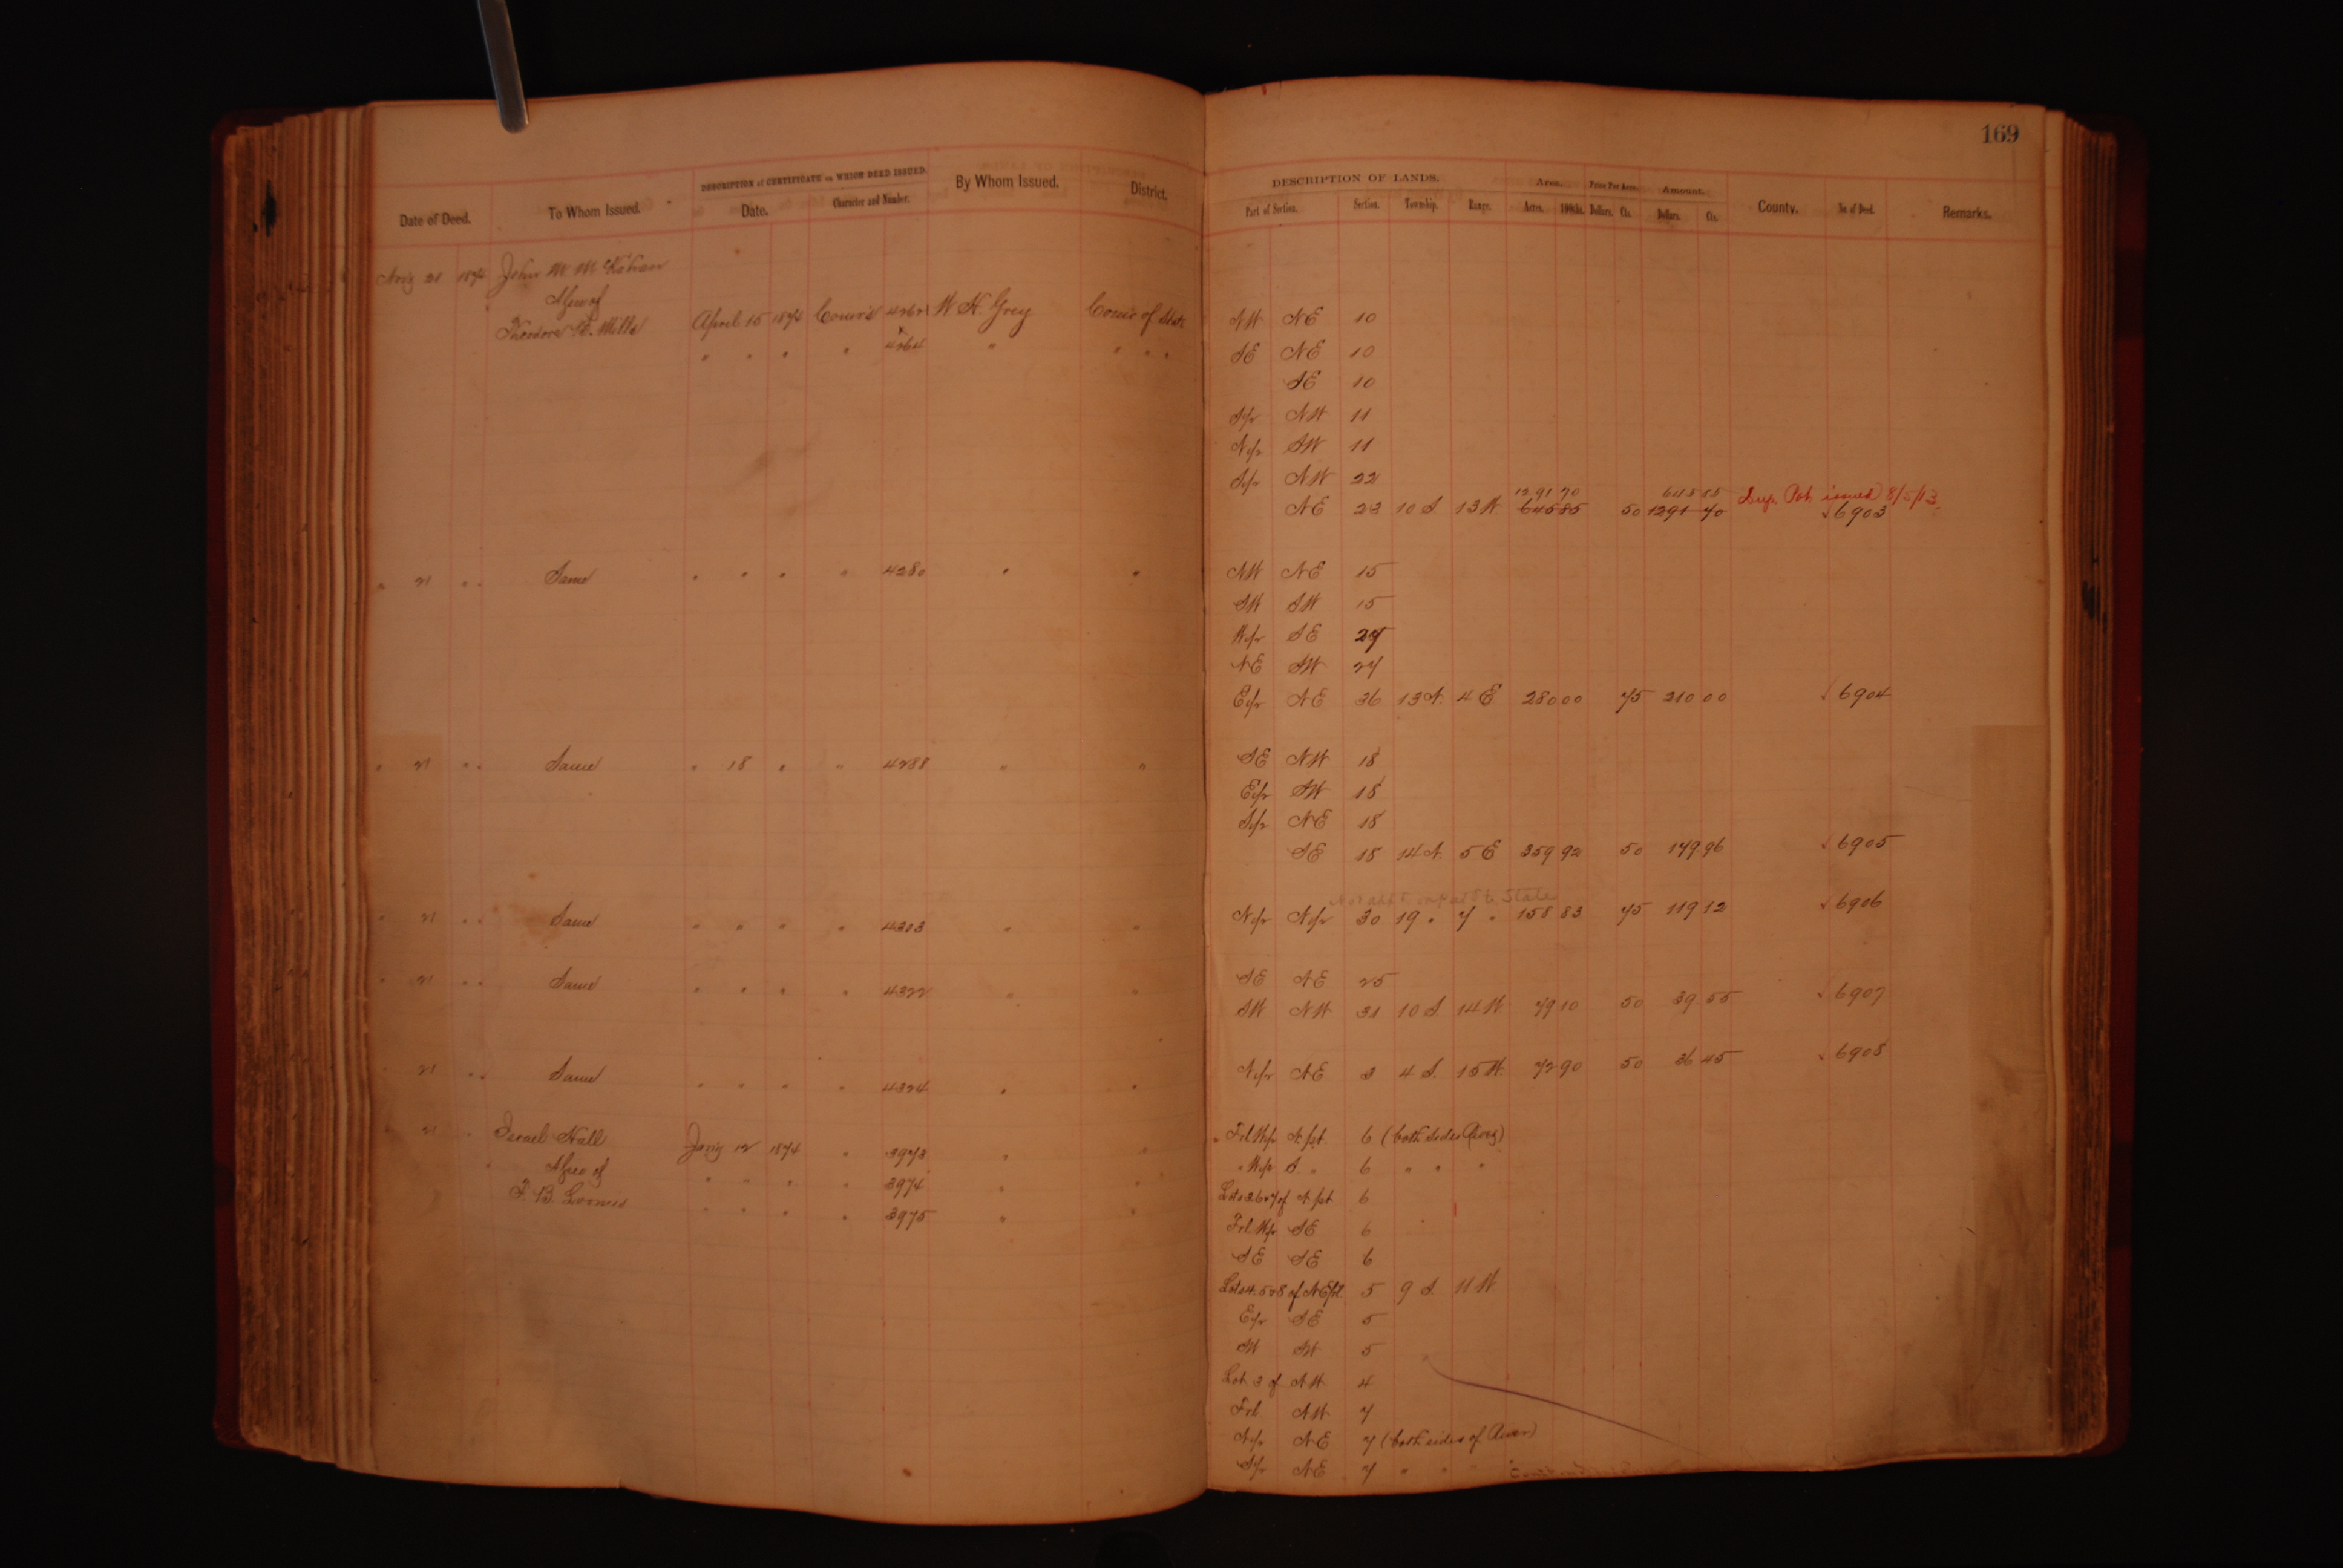 169
DESCRIPTION of CERTIFICATE on WHICH DEED ISSUED.
Date of Deed. To Whom Issued. Date. Character and Number. By Whom Issued. District.
21 1874 John M.
Theodore Mills April 15 1874 W. H. Grey Com'r of State
" " " " 4264 " " " "
" 21 " " Same " " " " 4280 " "
" 21 " " Same " 18 " " 4288 " "
" 21 " " Same " " " " 4303 " "
" 21 " " Same " " " " 4322 " "
" 21 " " Same " " " " 4324 " "
21 " Israel Hall Jan'y 12 1874 " 3973 " "
" " " " 3974 " "
F. B. Loomis " " " " 3975 " "
DESCRIPTION OF LANDS. Area. Price Per Acre. Amount.
Part of Section. Section. Township. Range. Acres. 100ths. Dollars. Cts. Dollars. Cts. County. No. of Deed. Remarks.
NW NE 10
SE NE 10
SE 10
S½ NW 11
N½ SW 11
S½ NW 22
1291 70 645 85 Sup. Pat. issued 8/5/13.
NE 23 10 S. 13 W 645 85 50 1291 70 6903
NW NE 15
SW SW 15
W½ SE 27
NE SW 27
E½ NE 36 13 N. 4 E 280 00 75 210 00 6904
SE NW 18
E½ SW 18
S½ NE 18
SE 18 14 N. 5 E 359 92 50 179 96 6905
to State
N½ N½ 30 19 " 7 " 158 83 75 119 12 6906
SE NE 25
SW NW 31 10 S. 14 W 79 10 50 39 55 6907
N½ NE 3 4 S. 15 W. 72 90 50 36 45 6908
Frl. W½ N. pt. 6 (both sides River)
" W½ S. " 6 " " "
of N. pt. 6
Frl. W½ SE 6
SE SE 6
Lots 4. 5 & 8 of NE frl. 5 9 S. 11 W.
E½ SE 5
SW SW 5
Lot 3 of NW 4
Frl. NW 7
N½ NE 7 (both sides of River)
S½ NE 7 " " "